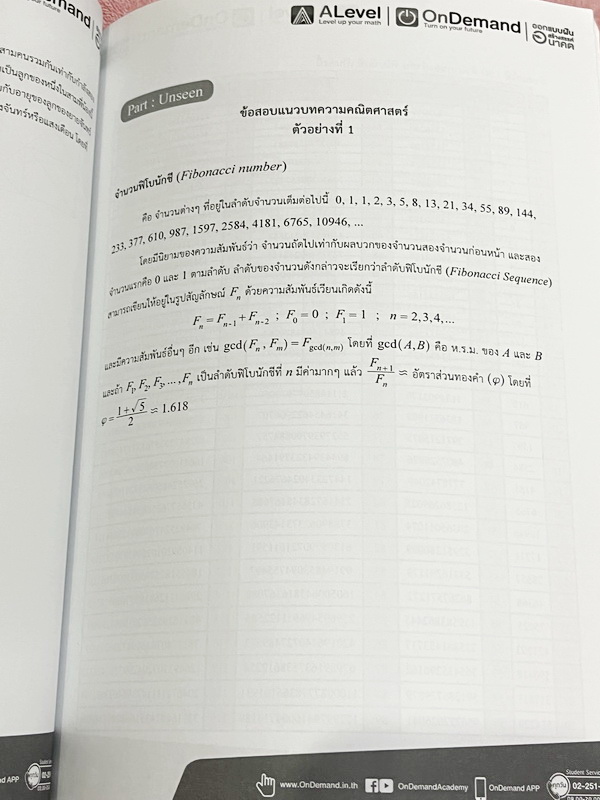 ALevel
Level up your math
OnDemand
Turn on your future
ออกแบบฝัน
สร้างสรรค์
อนาคต
Part : Unseen
ข้อสอบแนวบทความคณิตศาสตร์
ตัวอย่างที่ 1
จำนวนฟิโบนักชี (Fibonacci number)
คือ จำนวนต่างๆ ที่อยู่ในลำดับจำนวนเต็มต่อไปนี้ 0, 1, 1, 2, 3, 5, 8, 13, 21, 34, 55, 89, 144,
233, 377, 610, 987, 1597, 2584, 4181, 6765, 10946, ...
โดยมีนิยามของความสัมพันธ์ว่า จำนวนถัดไปเท่ากับผลบวกของจำนวนสองจำนวนก่อนหน้า และสอง
จำนวนแรกคือ 0 และ 1 ตามลำดับ ลำดับของจำนวนดังกล่าวจะเรียกว่าลำดับฟิโบนักชี (Fibonacci Sequence)
สามารถเขียนให้อยู่ในรูปสัญลักษณ์ Fₙ ด้วยความสัมพันธ์เวียนเกิดดังนี้
Fₙ = Fₙ₋₁ + Fₙ₋₂ ; F₀ = 0 ; F₁ = 1 ; n = 2,3,4,...
และมีความสัมพันธ์อื่นๆ อีก เช่น gcd(Fₙ, Fₘ) = F_gcd(n,m) โดยที่ gcd(A,B) คือ ห.ร.ม. ของ A และ B
และถ้า F₁, F₂, F₃, ..., Fₙ เป็นลำดับฟิโบนักชีที่ n มีค่ามากๆ แล้ว Fₙ₊₁/Fₙ ≈ อัตราส่วนทองคำ (φ) โดยที่
φ = (1+√5)/2 ≈ 1.618
www.OnDemand.in.th
OnDemandAcademy
OnDemand APP
Student Service
ทุกวัน
02-251-